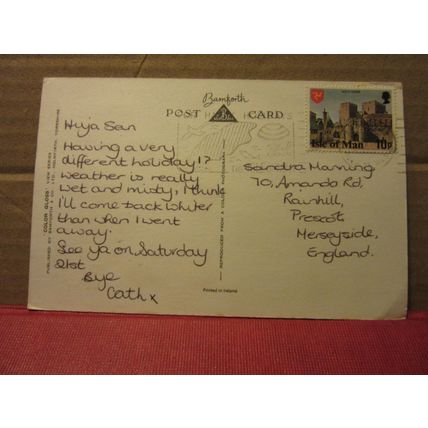 Bamforth
POST CARD
Isle of Man 10p
Hiya San
Having a very
different holiday!?
weather is really
wet and misty, I think
I'll come back whiter
than when I went
away.
See ya on Saturday
21st
Bye
Cath x
Sandra Manning
70, Amanda Rd.
Rainhill,
Prescot
Merseyside,
England.
"COLOR GLOSS" VIEW SERIES
PUBLISHED BY BAMFORTH & CO. LTD. HOLMFIRTH, YORKSHIRE
REPRODUCED FROM A COLOUR PHOTOGRAPH
Printed in Ireland